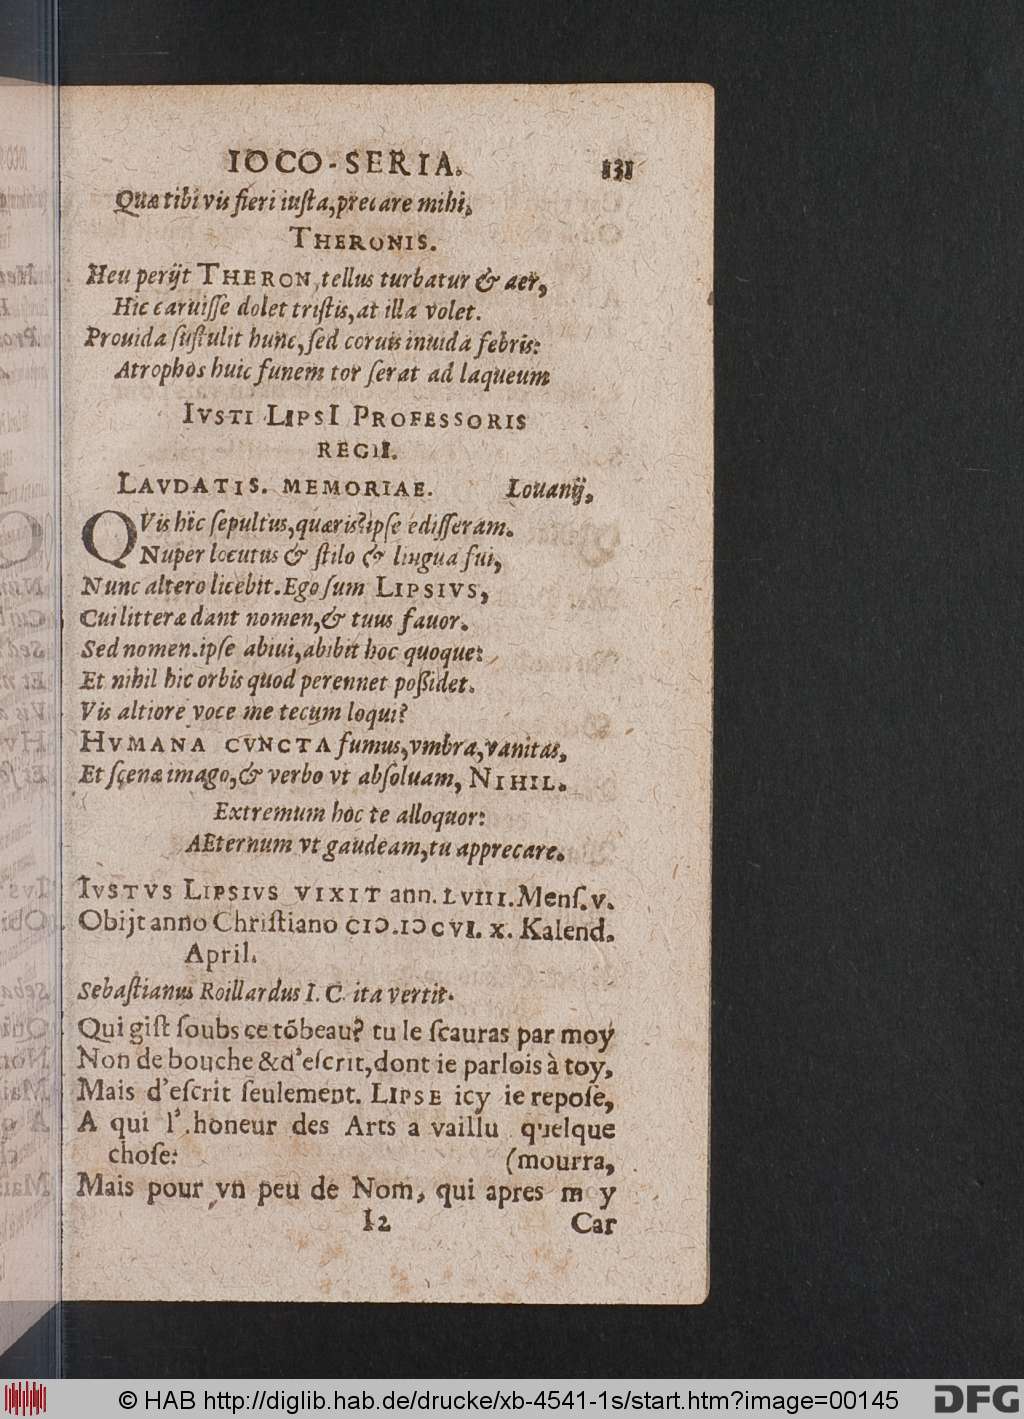 IOCO-SERIA. 131
Quæ tibi vis fieri iuſta, precare mihi.
THERONIS.
Heu perijt THERON, tellus turbatur & aer,
Hic caruiſſe dolet triſtis, at illa volet.
Prouida ſuſtulit hunc, ſed coruis inuida febris:
Atrophos huic funem tor ſerat ad laqueum
IVSTI LIPSI PROFESSORIS
REGII.
LAVDATIS. MEMORIAE. Louanij,
QVis hic ſepultus, quæris? ipſe ediſſeram.
Nuper locutus & ſtilo & lingua fui,
Nunc altero licebit. Ego ſum LIPSIVS,
Cui litteræ dant nomen, & tuus fauor.
Sed nomen. ipſe abiui, abibit hoc quoque:
Et nihil hic orbis quod perennet poßidet.
Vis altiore voce me tecum loqui?
HVMANA CVNCTA fumus, vmbra, vanitas,
Et ſçenæ imago, & verbo vt abſoluam, NIHIL.
Extremum hoc te alloquor:
AEternum vt gaudeam, tu apprecare.
IVSTVS LIPSIVS VIXIT ann. LVIII. Menſ. v.
Obijt anno Chriſtiano CIↃ.IↃCVI. X. Kalend.
April.
Sebaſtianus Roillardus I. C. ita vertit.
Qui giſt ſoubs ce tõbeau? tu le ſcauras par moy
Non de bouche & d'eſcrit, dont ie parlois à toy,
Mais d'eſcrit ſeulement. LIPSE icy ie repoſe,
A qui l'honeur des Arts a vaillu quelque
choſe: (mourra,
Mais pour vn peu de Nom, qui apres m y
I2 Car
© HAB http://diglib.hab.de/drucke/xb-4541-1s/start.htm?image=00145 DFG